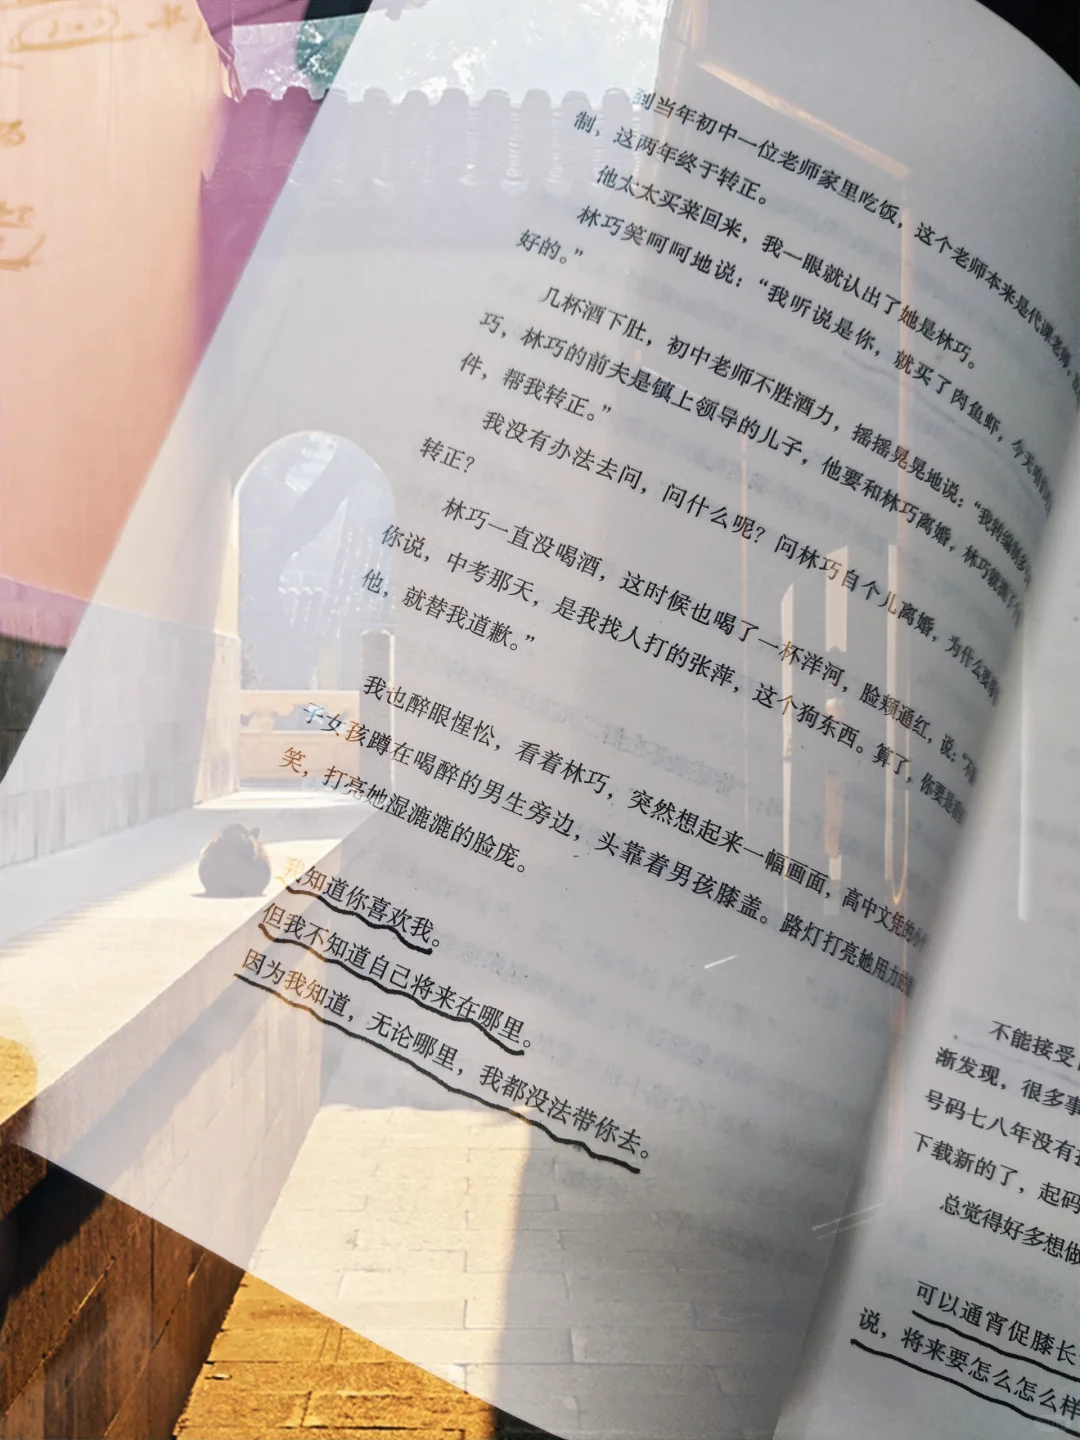 到当年初中一位老师家里吃饭，这个老师本来是代课老师，
制，这两年终于转正。
他太太买菜回来，我一眼就认出了她是林巧。
林巧笑呵呵地说：“我听说是你，就买了肉鱼虾，今天
好的。”
几杯酒下肚，初中老师不胜酒力，摇摇晃晃地说：“我转编制
巧，林巧的前夫是镇上领导的儿子，他要和林巧离婚，林巧
件，帮我转正。”
我没有办法去问，问什么呢？问林巧自个儿离婚，为什么要
转正？
林巧一直没喝酒，这时候也喝了一杯洋河，脸颊通红，说：“不
你说，中考那天，是我找人打的张萍，这个狗东西。算了，你要是
他，就替我道歉。”
我也醉眼惺忪，看着林巧，突然想起来一幅画面，高中文凭的小
子女孩蹲在喝醉的男生旁边，头靠着男孩膝盖。路灯打亮她用力
笑，打亮她湿漉漉的脸庞。
我知道你喜欢我。
但我不知道自己将来在哪里。
因为我知道，无论哪里，我都没法带你去。
不能接受
渐发现，很多事
号码七八年没有
下载新的了，起码
总觉得好多想做
可以通宵促膝长
说，将来要怎么怎么样